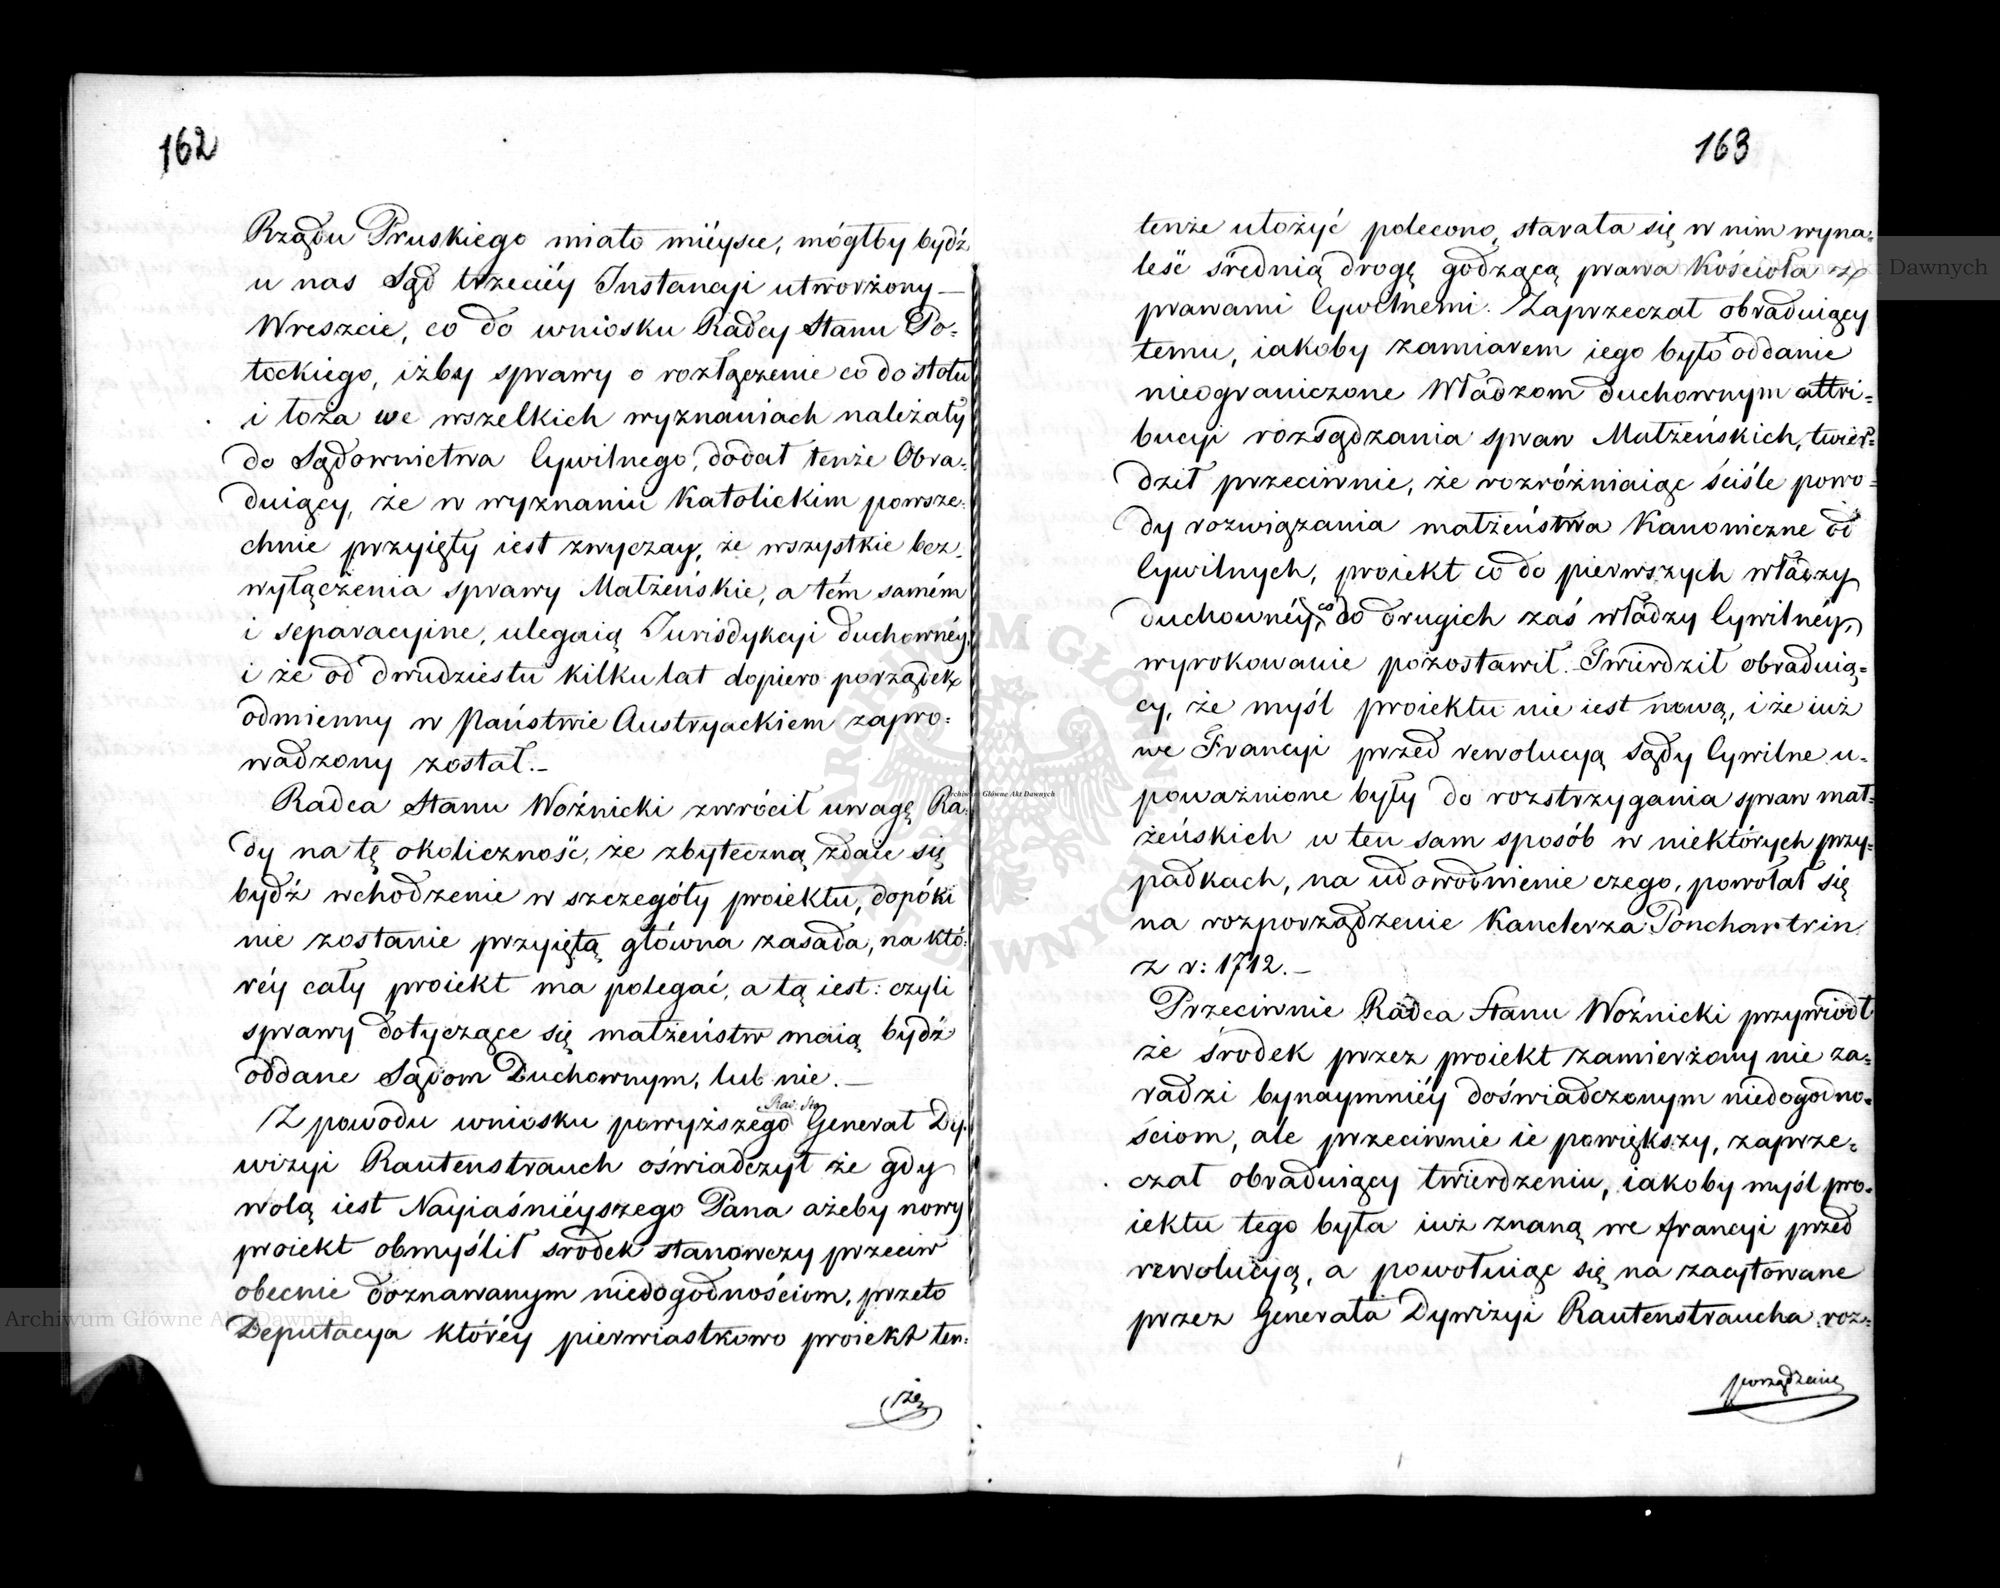 162
Rządu Pruskiego miało mieysce, mógłby bydź
u nas Sąd trzeciéy Instancyi utworzony —
Wreszcie, co do wniosku Radcy Stanu Po-
tockiego, iżby sprawy o rozłączenie co do stołu
i łoża we wszelkich wyznaniach należały
do Sądownictwa Cywilnego, dodał tenże Obra-
duiący, że w wyznaniu Katolickim powsze-
chnie przyięty iest zwyczay, że wszystkie bez
wyłączenia sprawy Małżeńskie, a tém samém
i separacyine, ulegaią Jurisdykcyi duchownéy,
i że od dwudziestu kilku lat dopiero porządek
odmienny w Państwie Austryackiem zapro-
wadzony został.—
Radca Stanu Woźnicki zwrócił uwagę Ra-
dy na tę okoliczność, że zbyteczną zdaie się
bydź wchodzenie w szczegóły proiektu, dopóki
nie zostanie przyiętą główna zasada, na któ-
réy cały proiekt ma polegać, a tą iest: czyli
sprawy dotyczące się małżeństw maią bydź
oddane Sądom Duchownym, lub nie.—
Rad. Sta
Z powodu wniosku powyższego Generał Dy-
wizyi Rautenstrauch oświadczył że gdy
wolą iest Nayiaśniéyszego Pana ażeby nowy
proiekt obmyślił srodek stanowczy przeciw
obecnie doznawanym niedogodnościom, przeto
Deputacya któréy pierwiastkowo proiekt ten-
że
163
tenże ułożyć polecono, starała się w nim wyna-
leść średnią drogę godzącą prawa Kościoła z
prawami Cywilnemi. Zaprzeczał obraduiący
temu, iakoby zamiarem iego było oddanie
nieograniczone Władzom duchownym attri-
bucyi rozsądzania spraw Małżeńskich, twier-
dził przeciwnie, że rozróżniaiąc ściśle powo-
dy rozwiązania małżeństwa Kanoniczne od
Cywilnych, proiekt co do pierwszych władzy
duchownéy, co do drugich zaś władzy Cywilnéy,
wyrokowanie pozostawił. Twierdził obraduią-
cy, że myśl proiektu nie iest nową, i że iuż
we Francyi przed rewolucyą Sądy Cywilne u-
poważnione były do rozstrzygania spraw mał-
żeńskich w ten sam sposób w niektórych przy-
padkach, na udowodnienie czego, powołał się
na rozporządzenie Kanclerza Ponchartrin
z r: 1712.—
Przeciwnie Radca Stanu Woźnicki przywiódł
że środek przez proiekt zamierzony nie za-
radzi bynaymniéy doświadczonym niedogodno-
ściom, ale przeciwnie ie powiększy, zaprze-
czał obraduiący twierdzeniu, iakoby myśl pro-
iektu tego była iuż znaną we francyi przed
rewolucyą, a powołuiąc się na zacytowane
przez Generała Dywizyi Rautenstraucha roz-
porządzenie
Archiwum Główne Akt Dawnych